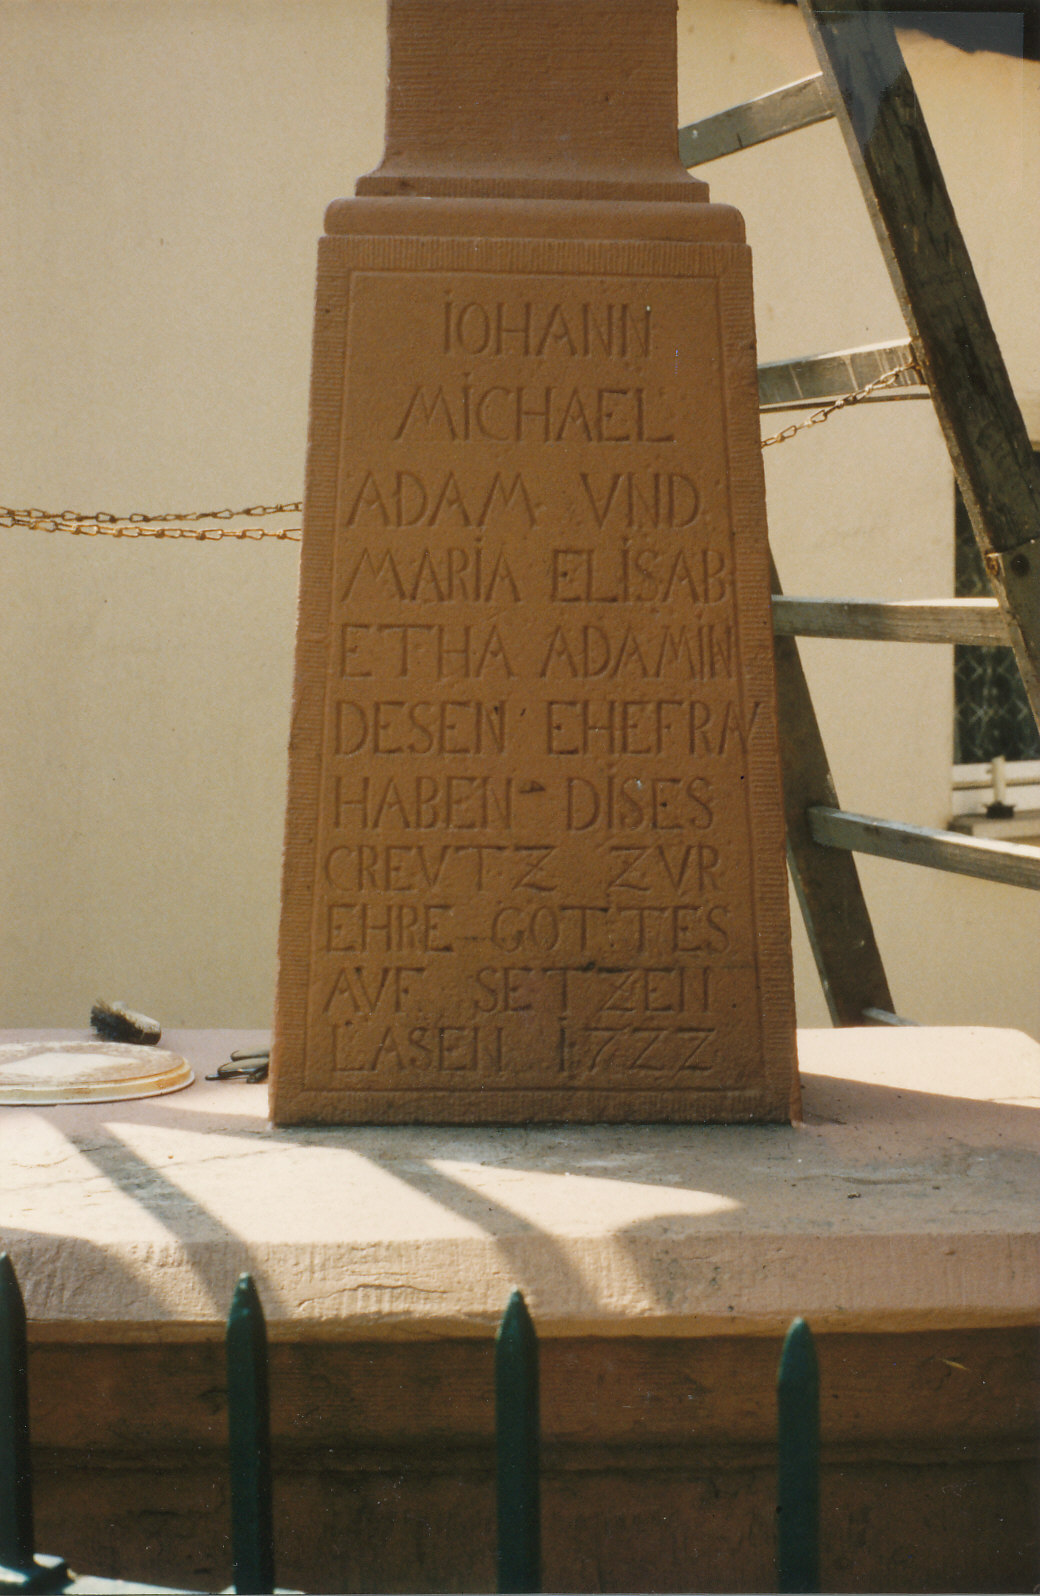 IOHANN
MICHAEL
ADAM VND
MARIA ELISAB
ETHA ADAMIN
DESEN EHEFRAV
HABEN DISES
CREVTZ ZVR
EHRE GOTTES
AVF SETZEN
LASEN 1722